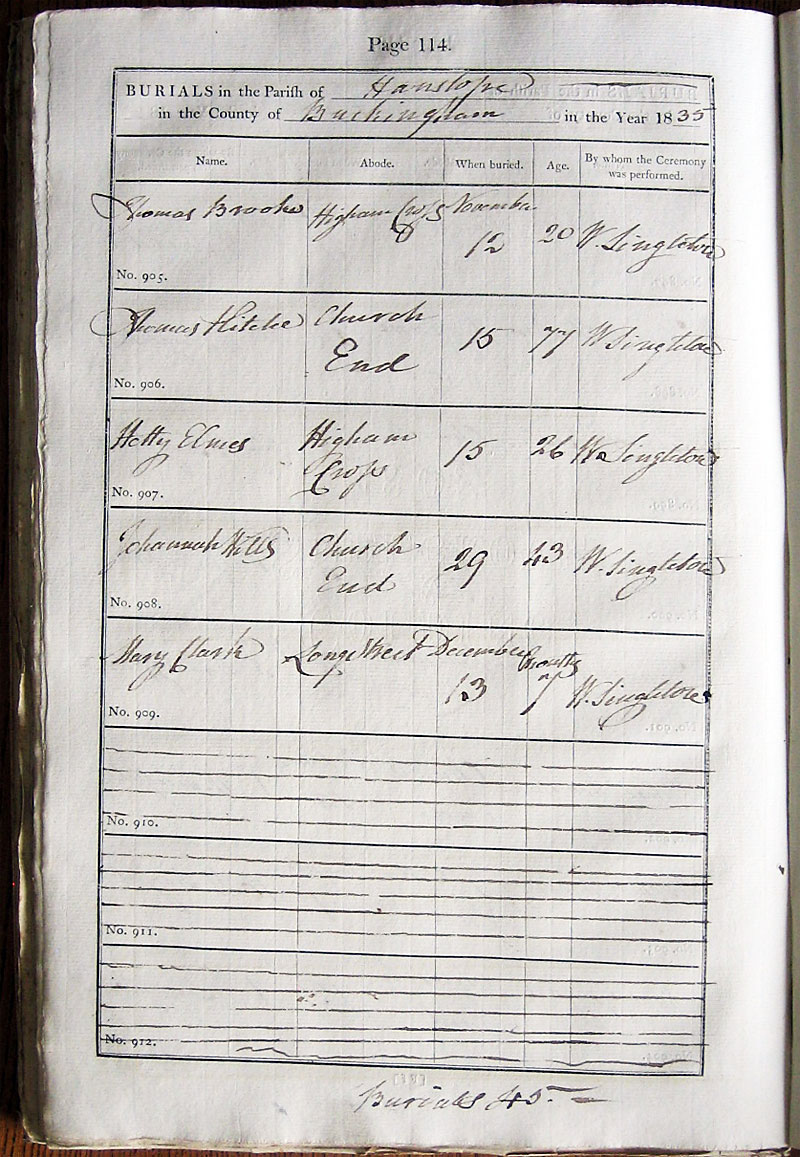 Page 114.
BURIALS in the Parish of Hanslope
in the County of Buckingham in the Year 1835
Name. Abode. When buried. Age. By whom the Ceremony was performed.
Thomas Brooks Higham Cross November 12 20 W. Singleton
No. 905.
Thomas Hitche Church End 15 77 W Singleton
No. 906.
Hetty Elmes Higham Cross 15 26 W. Singleton
No. 907.
Johannah Church End 29 43 W. Singleton
No. 908.
Mary Clark Long Street December 13 7 months W. Singleton
No. 909.
No. 910.
No. 911.
No. 912.
Burials 45.